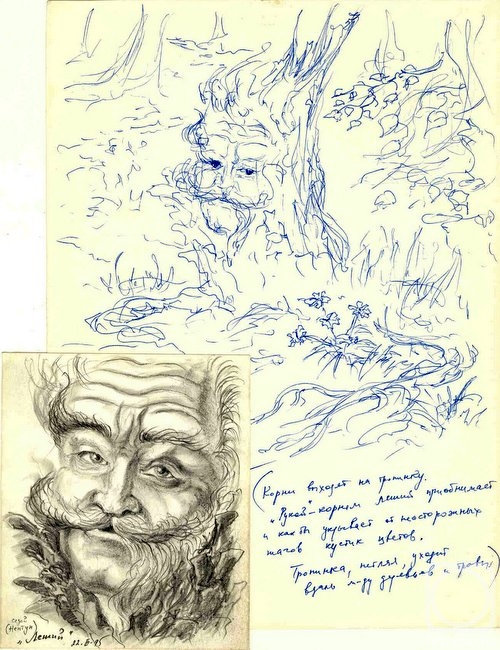 (Корни выходят на тропинку.
"Рукой-корнем леший приобнимает
и как бы укрывает от неосторожных
шагов кустик цветов.
Тропинка, петляя, уходит
вдаль м-ду деревьев и травы)
(Нептун)
"Леший"